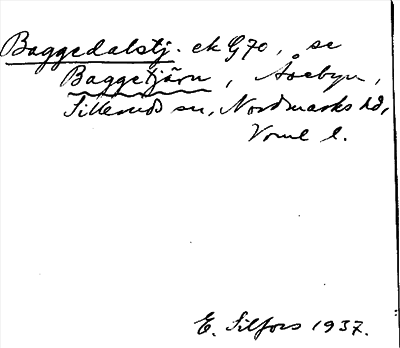 Baggedalstj. ek G70, se
Baggetjärn, Åsebyn,
Sillerud sn, Nordmarks hd,
Verml l.
E. Silfors 1937.